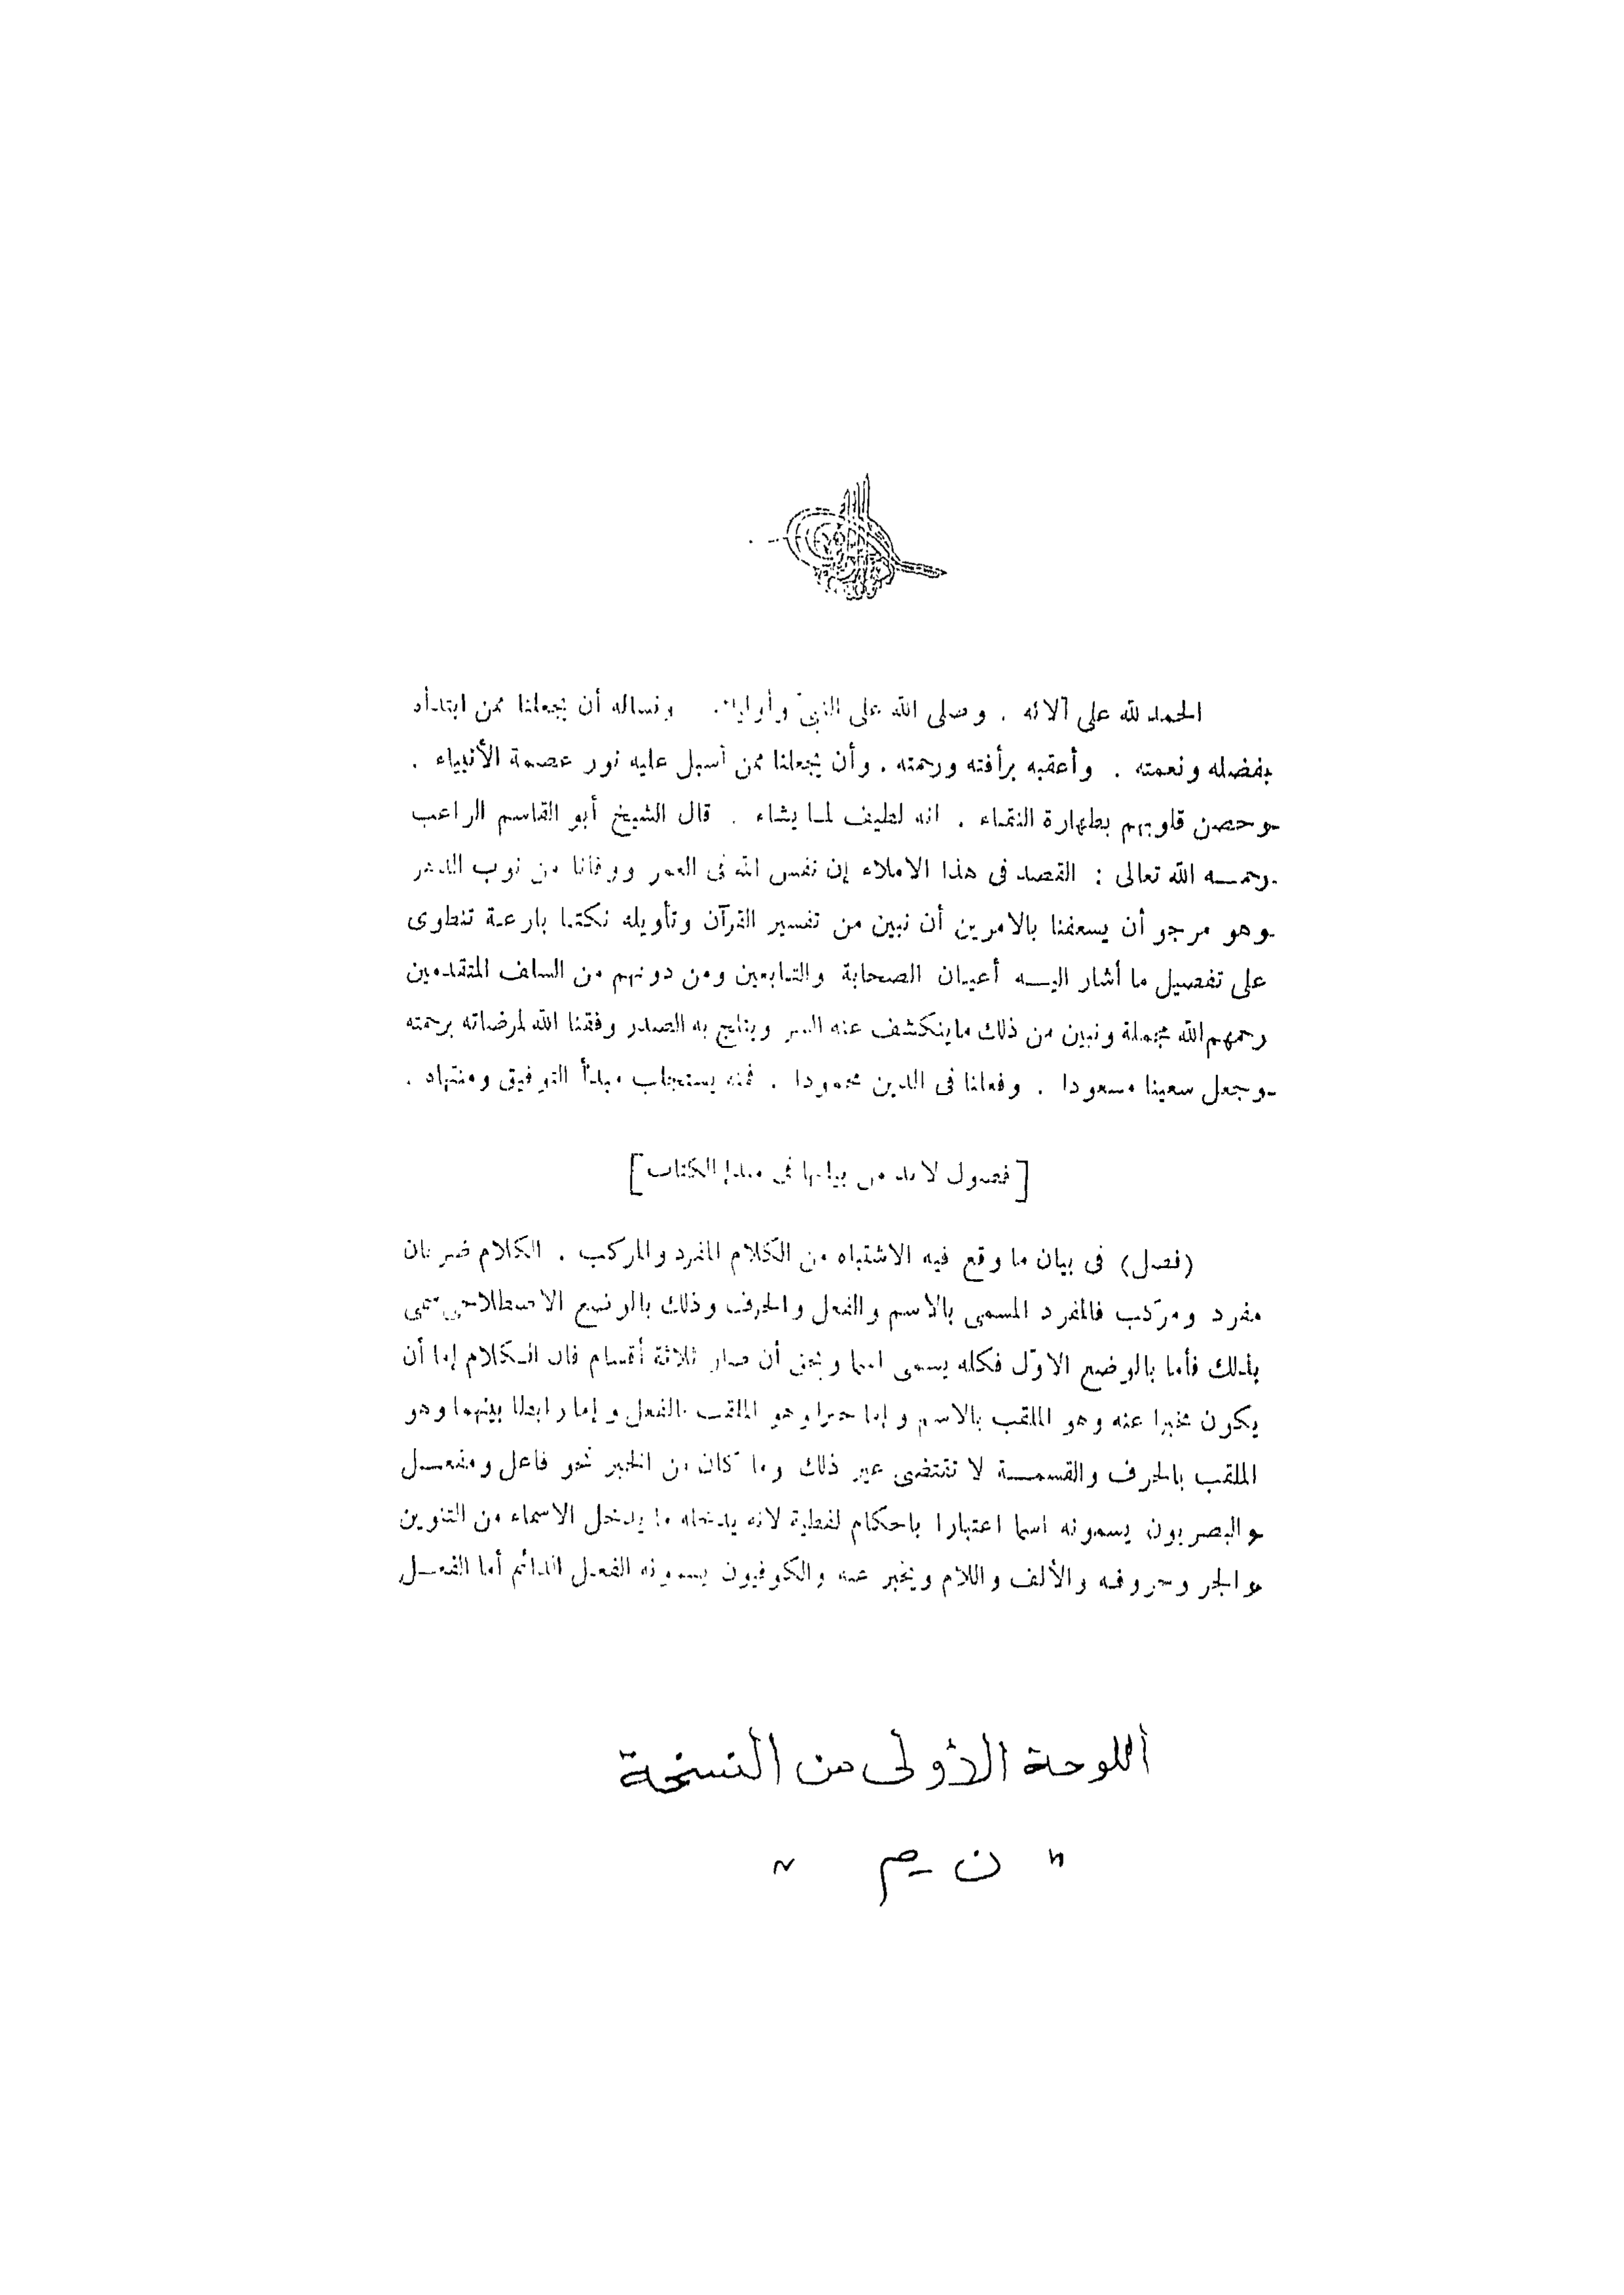 الحمد لله على آلائه . وصلى الله على النبيّ وأوليائه ونسأله أن يجعلنا ممن ابتدأه
بفضله ونعمته . وأعقبه برأفته ورحمته . وأن يجعلنا ممن أسبل عليه نور عصمة الأنبياء .
وحصن قلوبهم بطهارة النقباء . انه لطيف لما يشاء . قال الشيخ أبو القاسم الراغب
رحمه الله تعالى : القصد فى هذا الاملاء إن نفس الله فى العمر ووقانا من نوب الدهر
وهو مرجو أن يسعفنا بالامرين أن نبين من تفسير القرآن وتأويله نكتا بارعة تنطوى
على تفصيل ما أشار اليه أعيان الصحابة والتابعين ومن دونهم من السلف المتقدمين
رحمهم الله مجملة ونبين من ذلك ماينكشف عنه السر ويثلج به الصدر وفقنا الله لمرضاته برحمته
وجعل سعينا مسعودا . وفعلنا فى الدين محمودا . فمنه يستجلب مبدأ التوفيق ومنتهاه .
[فصول لا بد من بيانها فى مبدإ الكتاب]
(فصل) فى بيان ما وقع فيه الاشتباه من الكلام المفرد والمركب . الكلام ضربان
مفرد ومركّب فالمفرد المسمى بالاسم والفعل والحرف وذلك بالوضع الاصطلاحى سمى
بذلك فأما بالوضع الاوّل فكله يسمى اسما وبحق أن صار ثلاثة أقسام فان الكلام إما أن
يكون مخبرا عنه وهو الملقب بالاسم وإما خبرا وهو الملقب بالفعل وإما رابطا بينهما وهو
الملقب بالحرف والقسمة لا تقتضى غير ذلك وما كان من الخبر نحو فاعل ومفعل
والبصريون يسمونه اسما اعتبارا باحكام لفظية لانه يدخله ما يدخل الاسماء من التنوين
والجر وحروفه والألف واللام ويخبر عنه والكوفيون يسمونه الفعل الدائم أما الفعل
اللوحة الأولى من النسخة
" ن م "